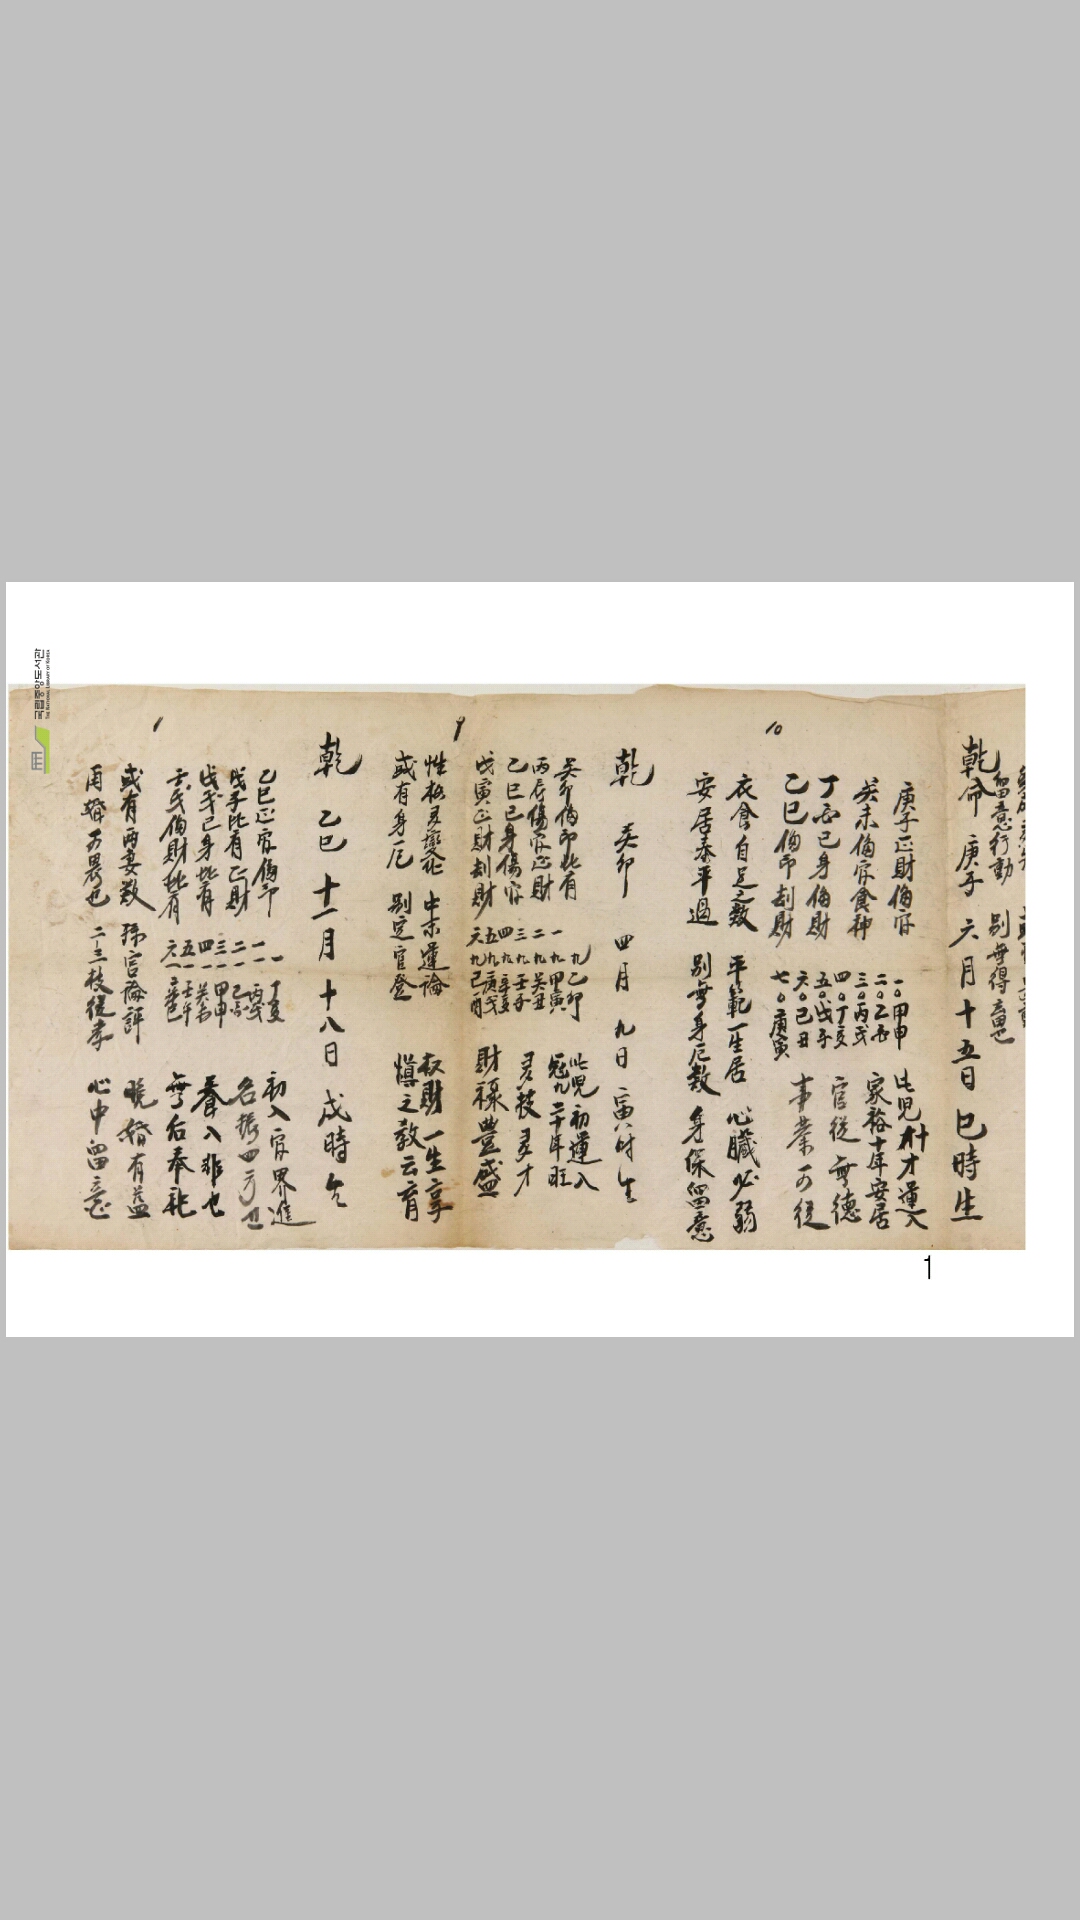 留意行動 別無得畜也
乾命 庚子 六月十五日 巳時生
庚子正財偏官 一〇甲申 此兒 才運入
癸未偏官食神 二〇乙酉 三〇丙戌 家裕十年安居
丁酉己身偏財 四〇丁亥 五〇戊子 官從無德
乙巳偏印劫財 六〇己丑 七〇庚寅 事業可從
衣食自足之數 平範一生居 心臟必弱
安居泰平過 別無身厄數 身保留意
10
乾 癸卯 四月 九日 寅時生
癸卯偏印比肩 九乙卯 一九甲寅 此兒初運入
丙辰傷官正財 二九癸丑 三九壬子 冠九二十年旺
乙巳己身傷官 四九辛亥 多技多才
戊寅正財劫財 五九庚戌 六九己酉 財祿豊盛
9
性格多變化 中末運論 權財一生享
或有身厄 別定官登 愼之敎云育
乾 乙巳 十一月 十八日 戌時
乙巳正官偏印 一丁亥 一一丙戌 初入官界進
戊子比肩正財 二一乙酉 名振四方也
戊戌己身比肩 三一甲申 四一癸未 養入非也
壬戌偏財比肩 五一壬午 六一辛巳 無后奉祀
1
或有兩妻數 孫官論評 晩婚有益
再婚可畏也 二三枝從孝 心中留意
국립중앙도서관
THE NATIONAL LIBRARY OF KOREA
1